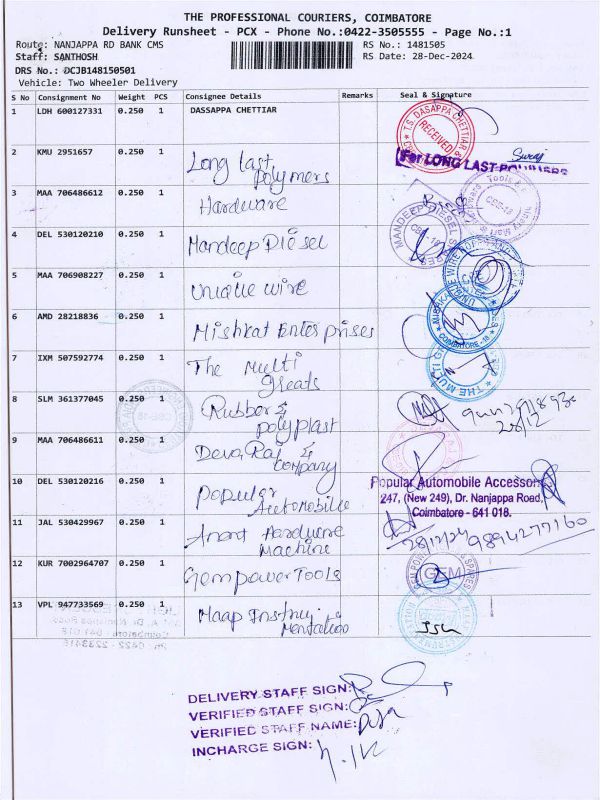 THE PROFESSIONAL COURIERS, COIMBATORE
Delivery Runsheet - PCX - Phone No.:0422-3505555 - Page No.:1
Route: NANJAPPA RD BANK CMS
RS No.: 1481505
Staff: SANTHOSH
RS Date: 28-Dec-2024
DRS No.: DCJB148150501
Vehicle: Two Wheeler Delivery
S No Consignment No Weight PCS Consignee Details Remarks Seal & Signature
1 LDH 600127331 0.250 1 DASSAPPA CHETTIAR
T.S. DASAPPA CHETTIAR
RECEIVED
2 KMU 2951657 0.250 1 Long last
polymers
For LONG LAST POLYMERS
Suraj
3 MAA 706486612 0.250 1 Hardware
4 DEL 530120210 0.250 1 Mandeep Diesel
MANDEEP DIESEL SPARES
5 MAA 706908227 0.250 1 Unique wire
6 AMD 28218836 0.250 1 Mishkat Enterprises
COIMBATORE-18
7 IXM 507592774 0.250 1 The Multi
greats
THE MULTI
8 SLM 361377045 0.250 1 Rubber &
polyplast
28/12
9 MAA 706486611 0.250 1 Deva Raj &
Company
10 DEL 530120216 0.250 1 Popular
Automobile
Popular Automobile Accessor
247, (New 249), Dr. Nanjappa Road,
Coimbatore - 641 018.
11 JAL 530429967 0.250 1 Anant Hardware
Machine
28/12/24
9894277160
12 KUR 7002964707 0.250 1 Gem Power Tools
13 VPL 947733569 0.250 1 Maap Instru
mentation
DELIVERY STAFF SIGN:
VERIFIED STAFF SIGN:
VERIFIED STAFF NAME:
INCHARGE SIGN: